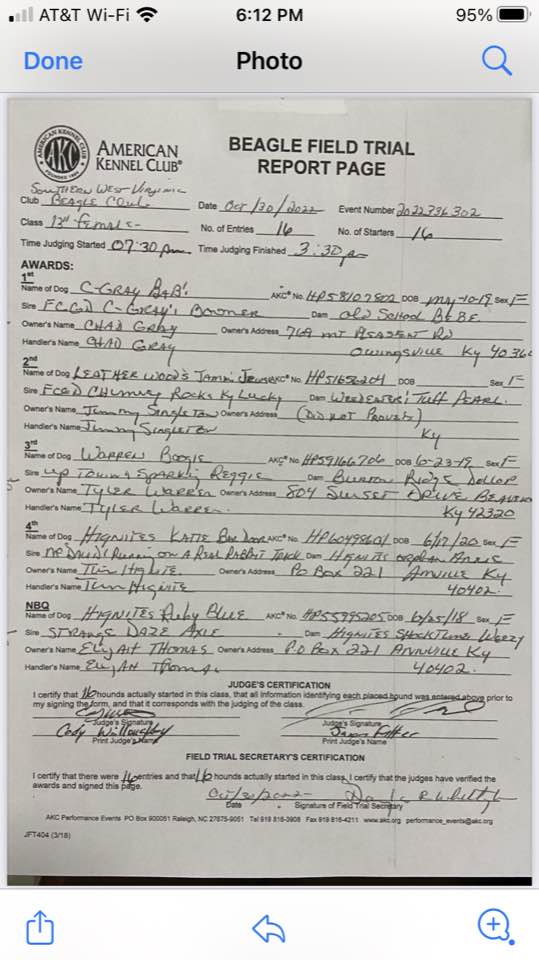 AT&T Wi-Fi 6:12 PM 95%
Done Photo
AMERICAN KENNEL CLUB
AKC
FOUNDED 1884
AMERICAN
KENNEL CLUB®
BEAGLE FIELD TRIAL
REPORT PAGE
Southern West Virginia
Club Beagle Club Date Oct/30/2022 Event Number 2022796302
Class 13" female No. of Entries 16 No. of Starters 16
Time Judging Started 07:30 Time Judging Finished 3:30
AWARDS:
1st
Name of Dog C-GRAY BaB! AKC® No. HP58107802 DOB May-10-19 Sex F
Sire FCGD C-GRAY'S Boomer Dam old School BeBe
Owner's Name CHAD GRAY Owner's Address 769 mt PleasENT Rd
Handler's Name CHAD GRAY Owingsville Ky 40360
2nd
Name of Dog LEATHER WOODS Jammin AKC® No. HP51656204 DOB Sex F
Sire FCGD Chimney Rocks Ky Lucky Dam WEEDEATER! Tuff PEARL
Owner's Name Jimmy Singleton Owner's Address (Did not Provide)
Handler's Name Jimmy Singleton Ky
3rd
Name of Dog WARREN Boogie AKC® No. HP59166706 DOB 6-23-19 Sex F
Sire up Town Sparky Reggie Dam Burton Ridge Dollop
Owner's Name TYLER WARREN Owner's Address 804 Sunset DRIVE
Handler's Name TYLER WARREN Ky 42320
4th
Name of Dog HIGNITES KATIE Bar Door AKC® No. HP60498601 DOB 6/17/20 Sex F
Sire Running on A Real Rabbit Track Dam HIGNITES orphan Annie
Owner's Name Tim Hignite Owner's Address PO Box 221 ANNVILLE Ky
Handler's Name Tim Hignite 40402.
NBQ
Name of Dog HIGNITES Ruby Blue AKC® No. HP55995205 DOB 6/25/18 Sex F
Sire STRANGE DAZE AXLE Dam Hignites
Owner's Name Elijah THOMAS Owner's Address P.O Box 221 ANNVILLE Ky
Handler's Name Elijah Thomas 40402.
JUDGE'S CERTIFICATION
I certify that 16 hounds actually started in this class, that all information identifying each placed hound was entered above prior to
my signing the form, and that it corresponds with the judging of the class.
Judge's Signature Judge's Signature
Cody Willoughby Jason
Print Judge's Name Print Judge's Name
FIELD TRIAL SECRETARY'S CERTIFICATION
I certify that there were 16 entries and that 16 hounds actually started in this class. I certify that the judges have verified the
awards and signed this page.
Oct/30/2022
Date Signature of Field Trial Secretary
AKC Performance Events PO Box 900051 Raleigh, NC 27675-9051 Tel 919 816-3908 Fax 919 816-4211 www.akc.org performance_events@akc.org
JFT404 (3/18)